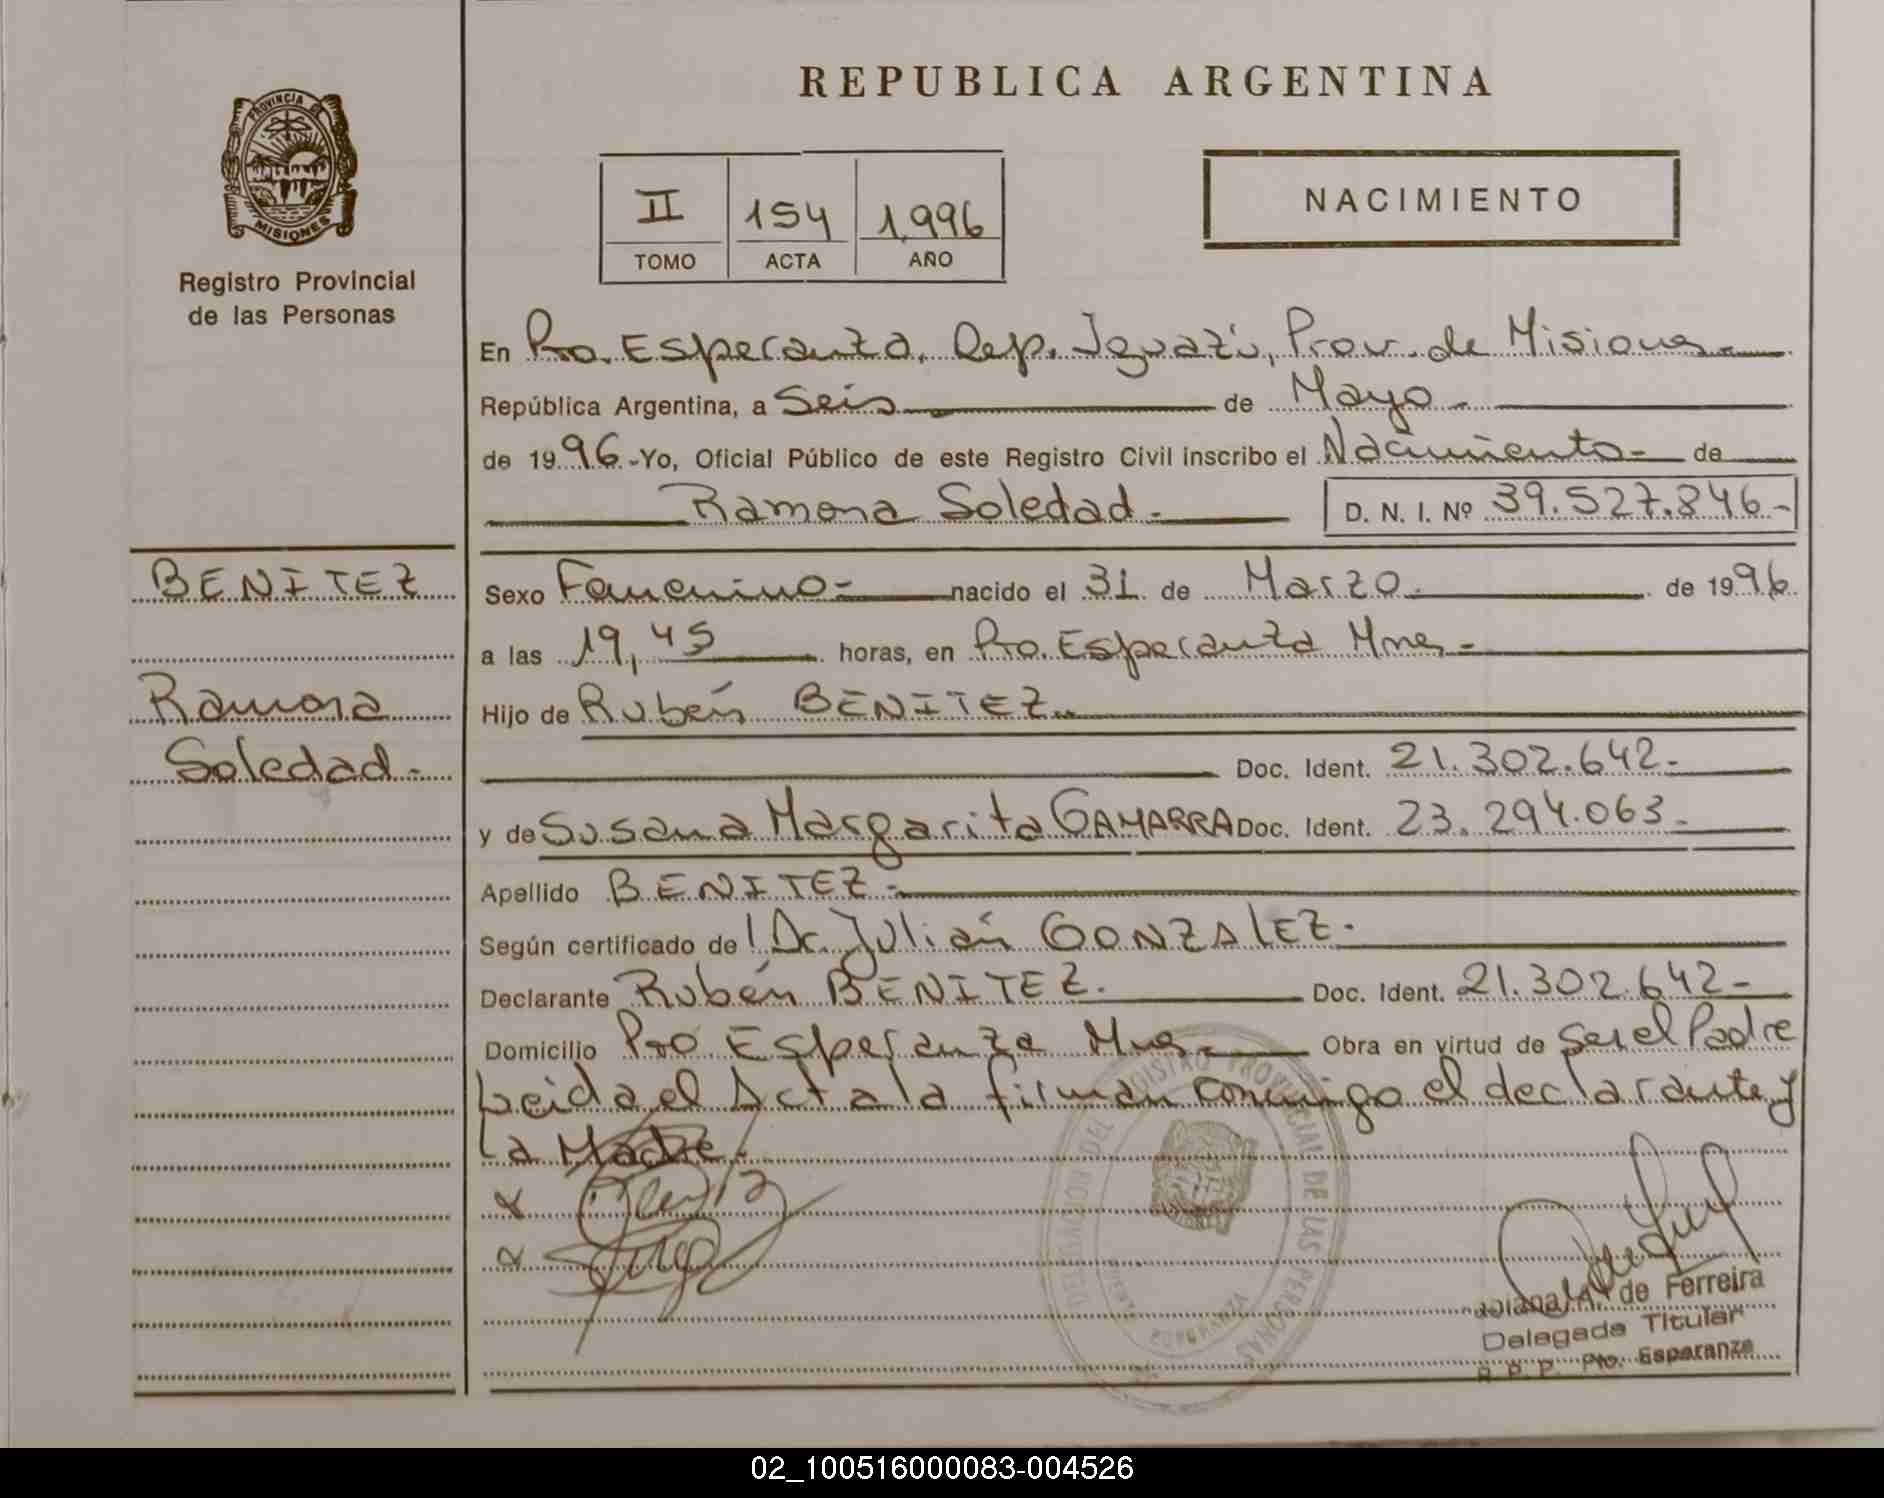 REPUBLICA ARGENTINA
PROVINCIA DE
MISIONES
Registro Provincial
de las Personas
II 154 1.996
TOMO ACTA AÑO
NACIMIENTO
En Pto. Esperanza, Dep. Iguazú, Prov. de Misiones
República Argentina, a Seis de Mayo
de 1996 - Yo, Oficial Público de este Registro Civil inscribo el Nacimiento de
Ramona Soledad D. N. I. Nº 39.527.846
BENITEZ
Ramona
Soledad
Sexo Femenino nacido el 31 de Marzo de 1996
a las 19,45 horas, en Pto. Esperanza Mnes
Hijo de Rubén BENITEZ
Doc. Ident. 21.302.642
y de Susana Margarita GAMARRA Doc. Ident. 23.294.063
Apellido BENITEZ
Según certificado de Dr. Julián GONZALEZ
Declarante Rubén BENITEZ. Doc. Ident. 21.302.642
Domicilio Pto Esperanza Mnes Obra en virtud de Ser el Padre
Leida el Acta la firman conmigo el declarante y
La Madre.
DELEGACION DEL REGISTRO PROVINCIAL DE LAS PERSONAS
PUERTO ESPERANZA
A. de Ferreira
Delegada Titular
R. P. P. Pto. Esperanza
02_100516000083-004526